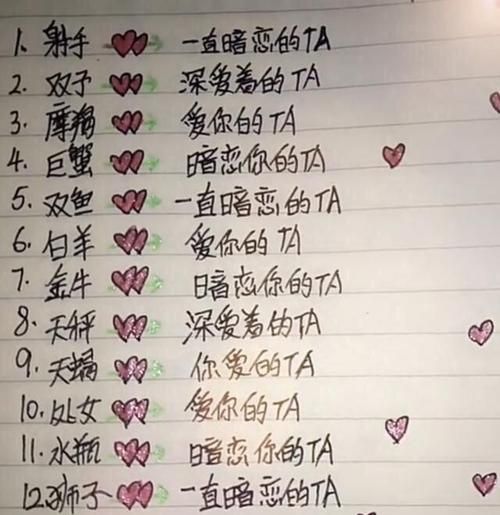 1. 射手 一直暗恋的TA
2. 双子 深爱着的TA
3. 摩羯 爱你的TA
4. 巨蟹 暗恋你的TA
5. 双鱼 一直暗恋的TA
6. 白羊 爱你的TA
7. 金牛 暗恋你的TA
8. 天秤 深爱着的TA
9. 天蝎 你爱的TA
10. 处女 爱你的TA
11. 水瓶 暗恋你的TA
12. 狮子 一直暗恋的TA